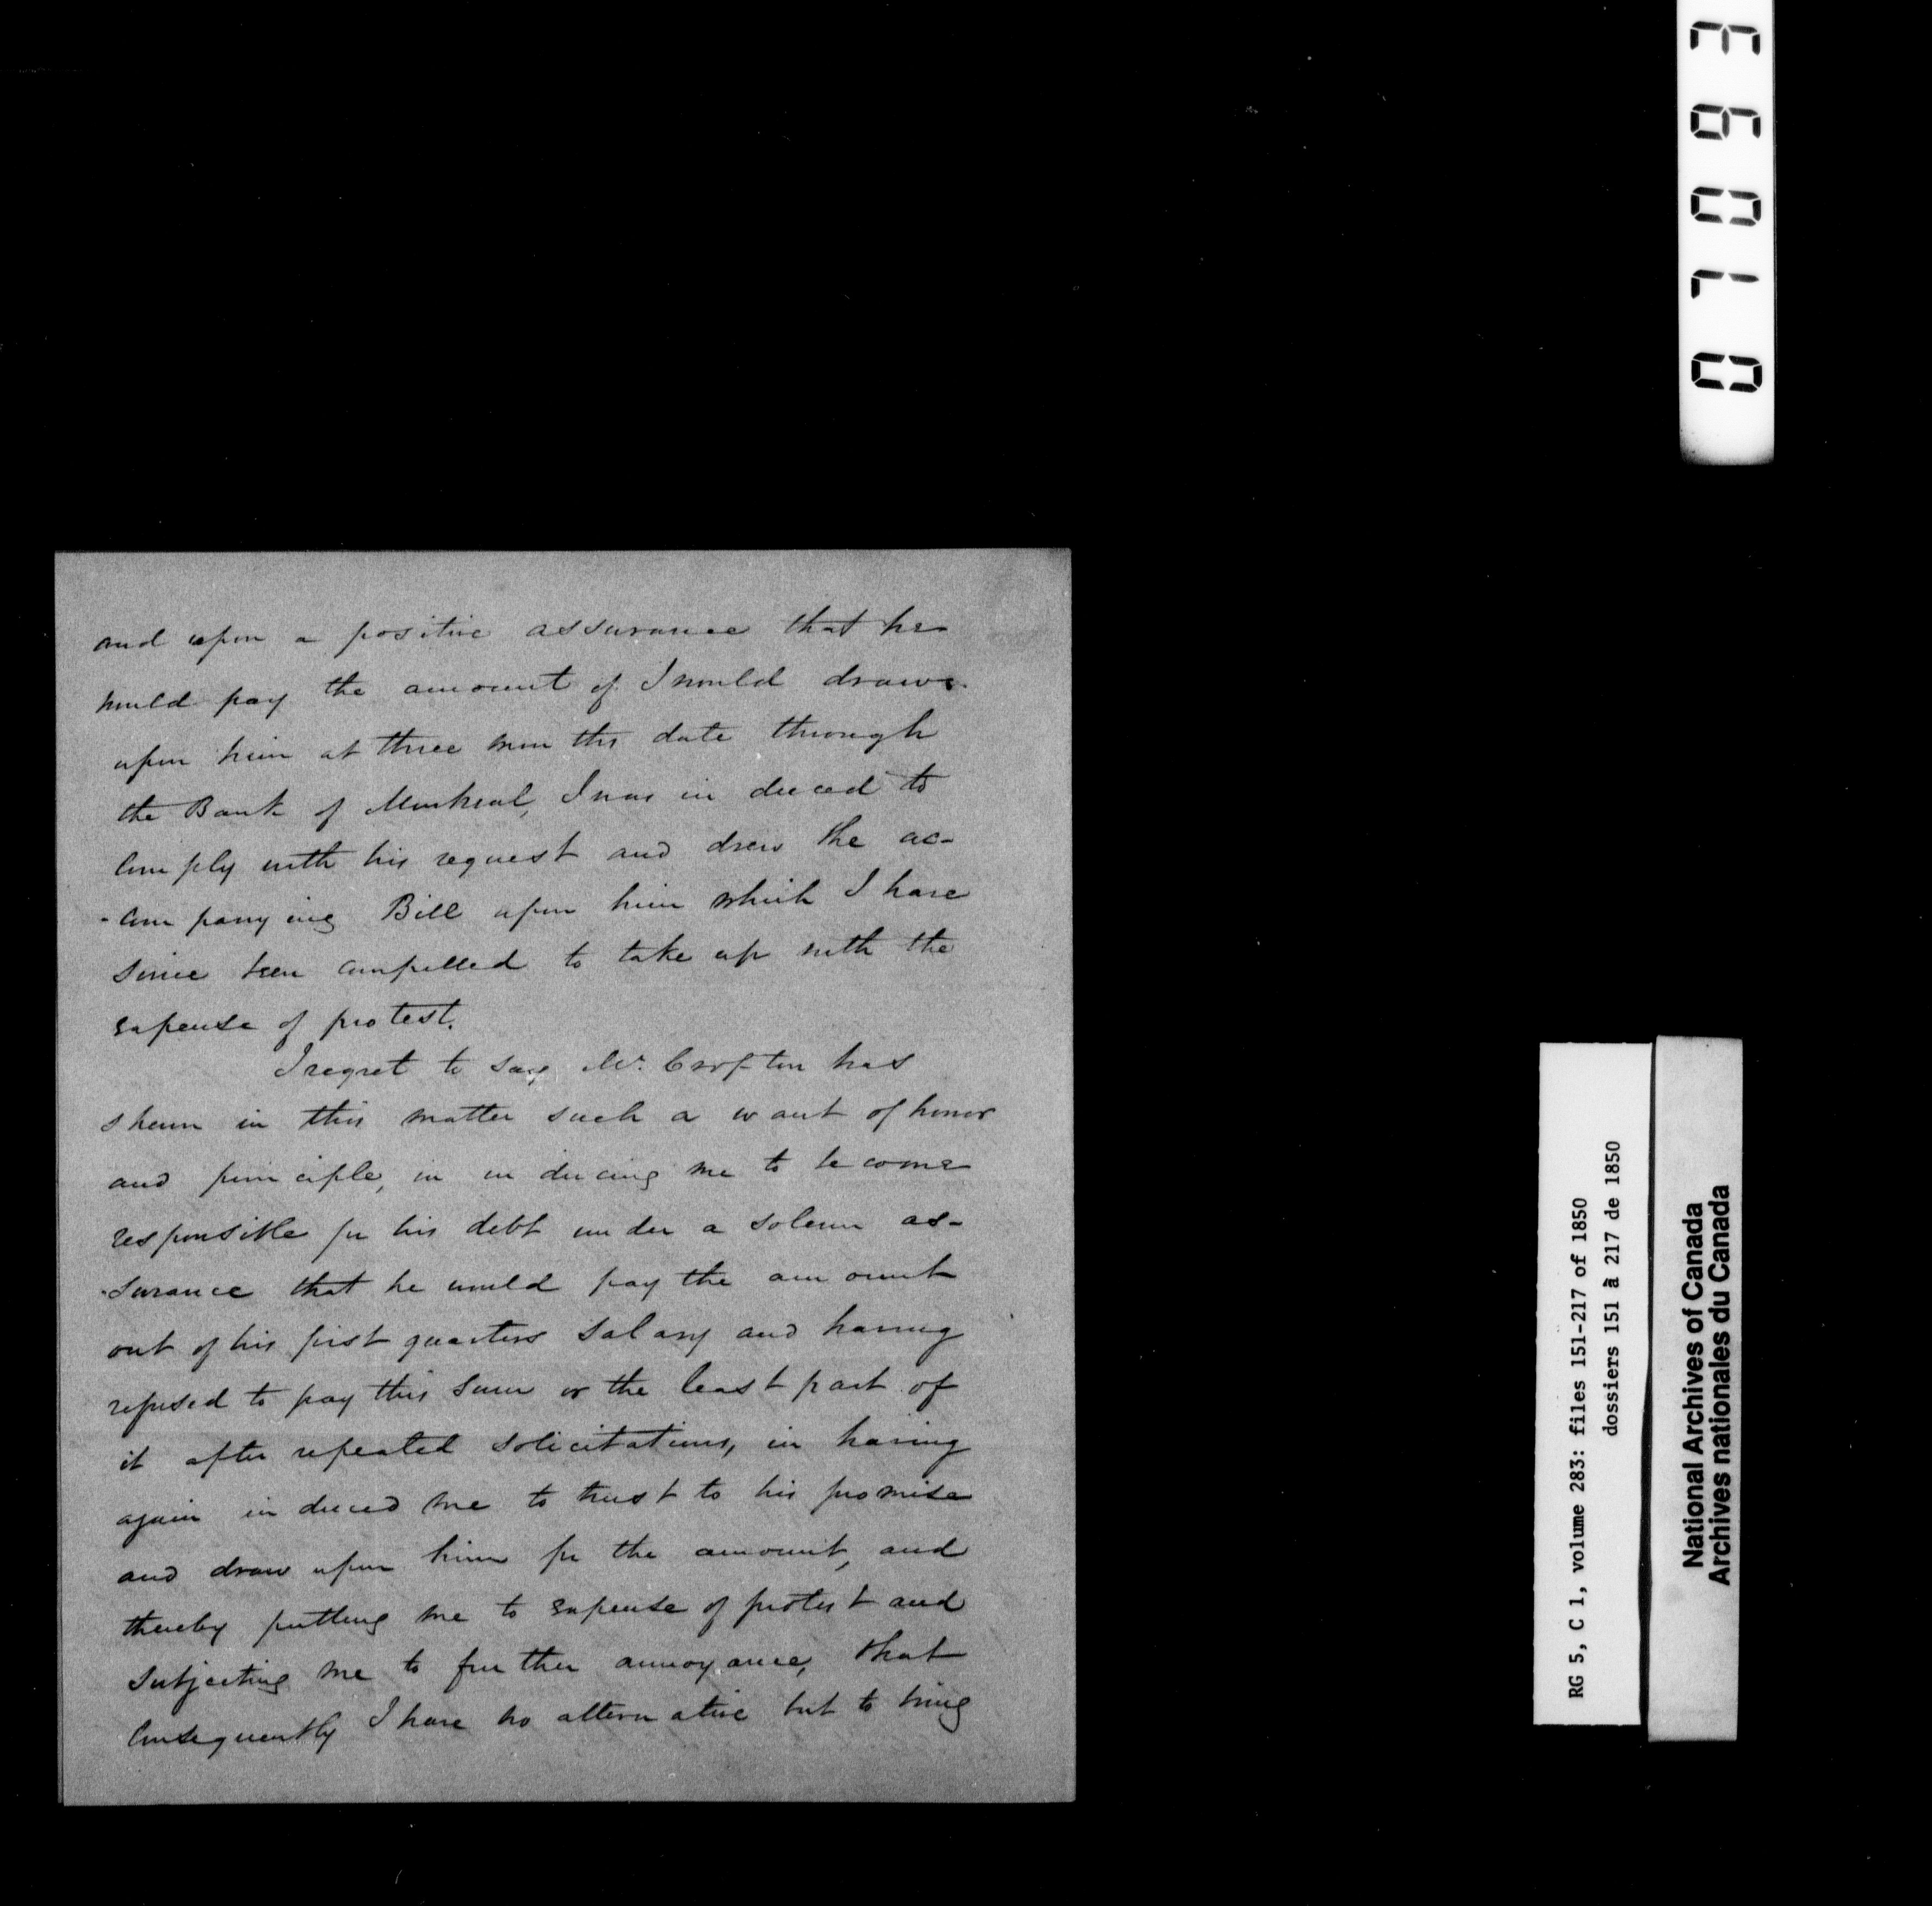 and upon a positive assurance that he
would pay the amount if I would draw
upon him at three months date through
the Bank of Montreal, I was induced to
comply with his request and drew the ac-
-companying Bill upon him which I have
since been compelled to take up with the
expense of protest.
I regret to say Mr. Crofton has
shewn in this matter such a want of honor
and principle, in inducing me to become
responsible for his debt under a solemn as-
-surance that he would pay the amount
out of his first quarters salary and having
refused to pay this sum or the least part of
it after repeated solicitations, in having
again induced me to trust to his promise
and draw upon him for the amount, and
thereby putting me to expense of protest and
subjecting me to further annoyance, that
consequently I have no alternative but to bring
01093
RG 5, C 1, volume 283: files 151-217 of 1850
dossiers 151 à 217 de 1850
National Archives of Canada
Archives nationales du Canada